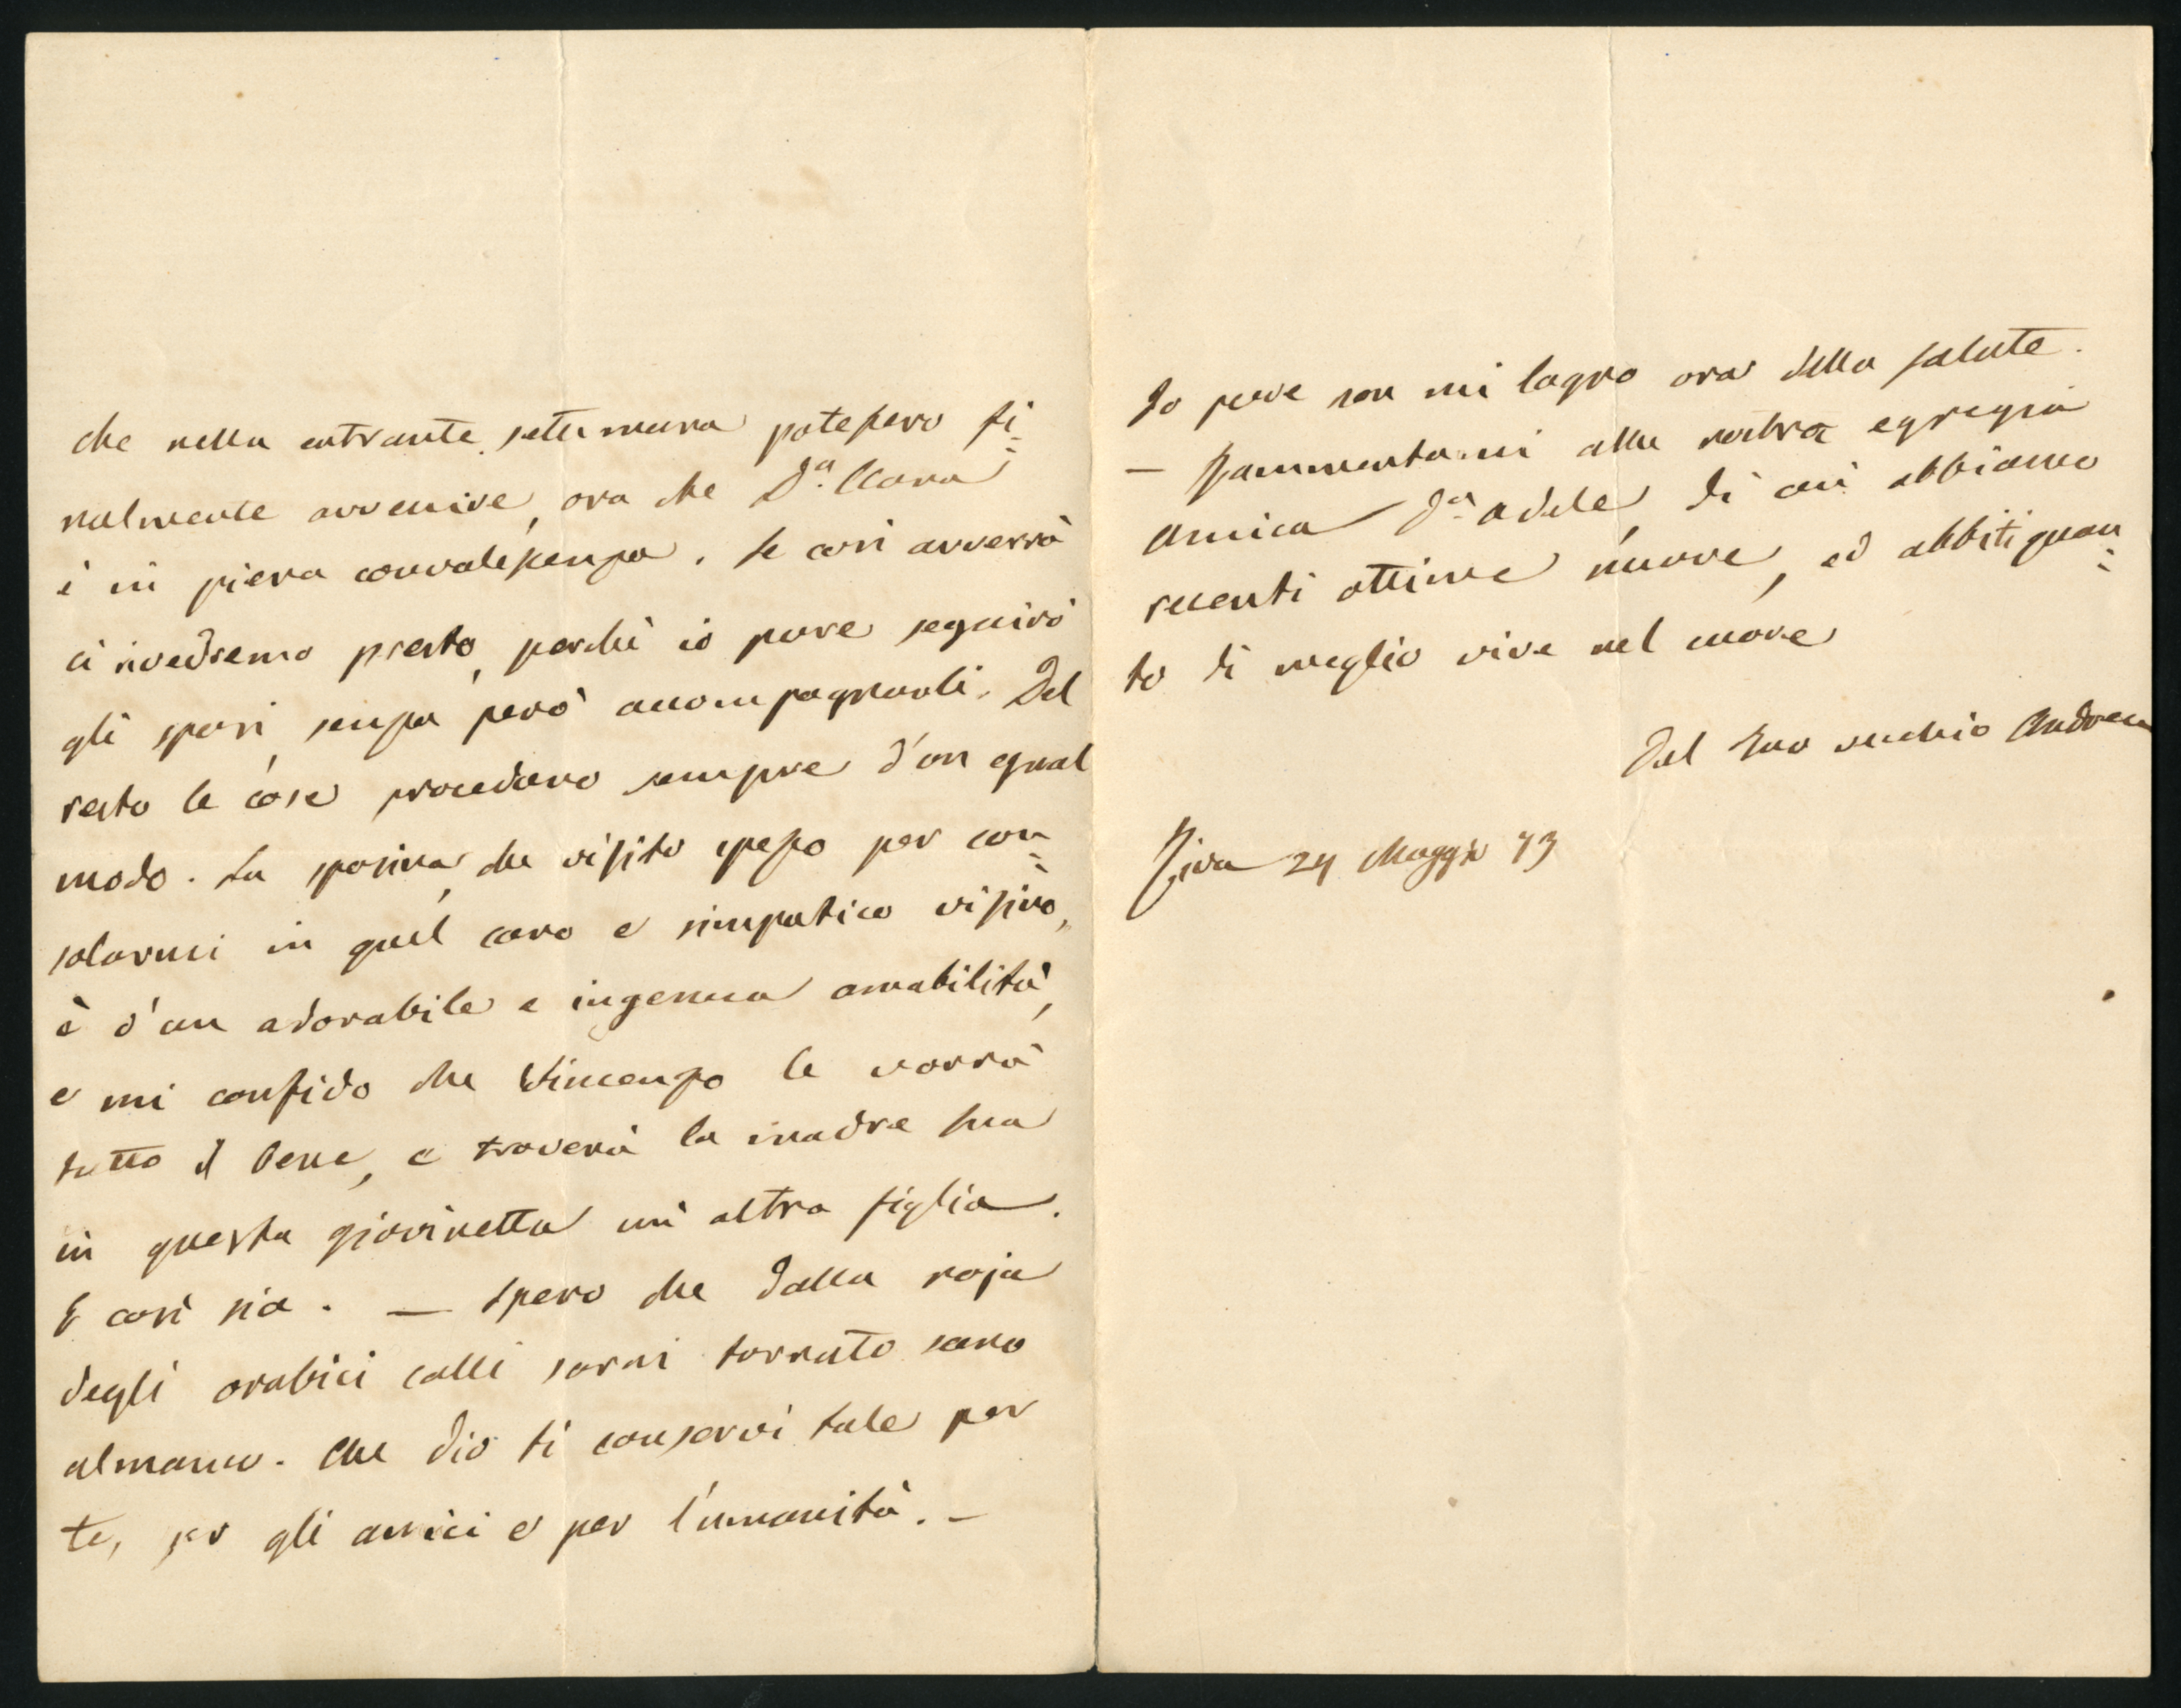 che nella entrante settimana potessero fi=
nalmente avvenire, ora che D.ª Clara
è in piena convalescenza. Se così avverrà
ci rivedremo presto, perchè io pure seguirò
gli sposi, senza però accompagnarli. Del
resto le cose procedono sempre d'un egual
modo. La sposina, che visito spesso per con=
solarmi in quel caro e simpatico visino,
è d'un adorabile e ingenua amabilità,
e mi confido che Vincenzo le vorrà
tutto il bene, e troverà la madre sua
in questa giovinetta un' altra figlia.
E così sia. — Spero che dalla
degli calli sarai tornato sano
almanco. Che Dio ti conservi tale per
te, per gli amici e per l'umanità. —
Io pure non mi lagno ora della salute.
— Rammentami alla nostra egregia
amica D.ª Adele, di cui abbiamo
recenti ottime nuove, ed abbiti quan=
to di meglio vive nel cuore
Del tuo vecchio Andrea
Riva 24 Maggio 73